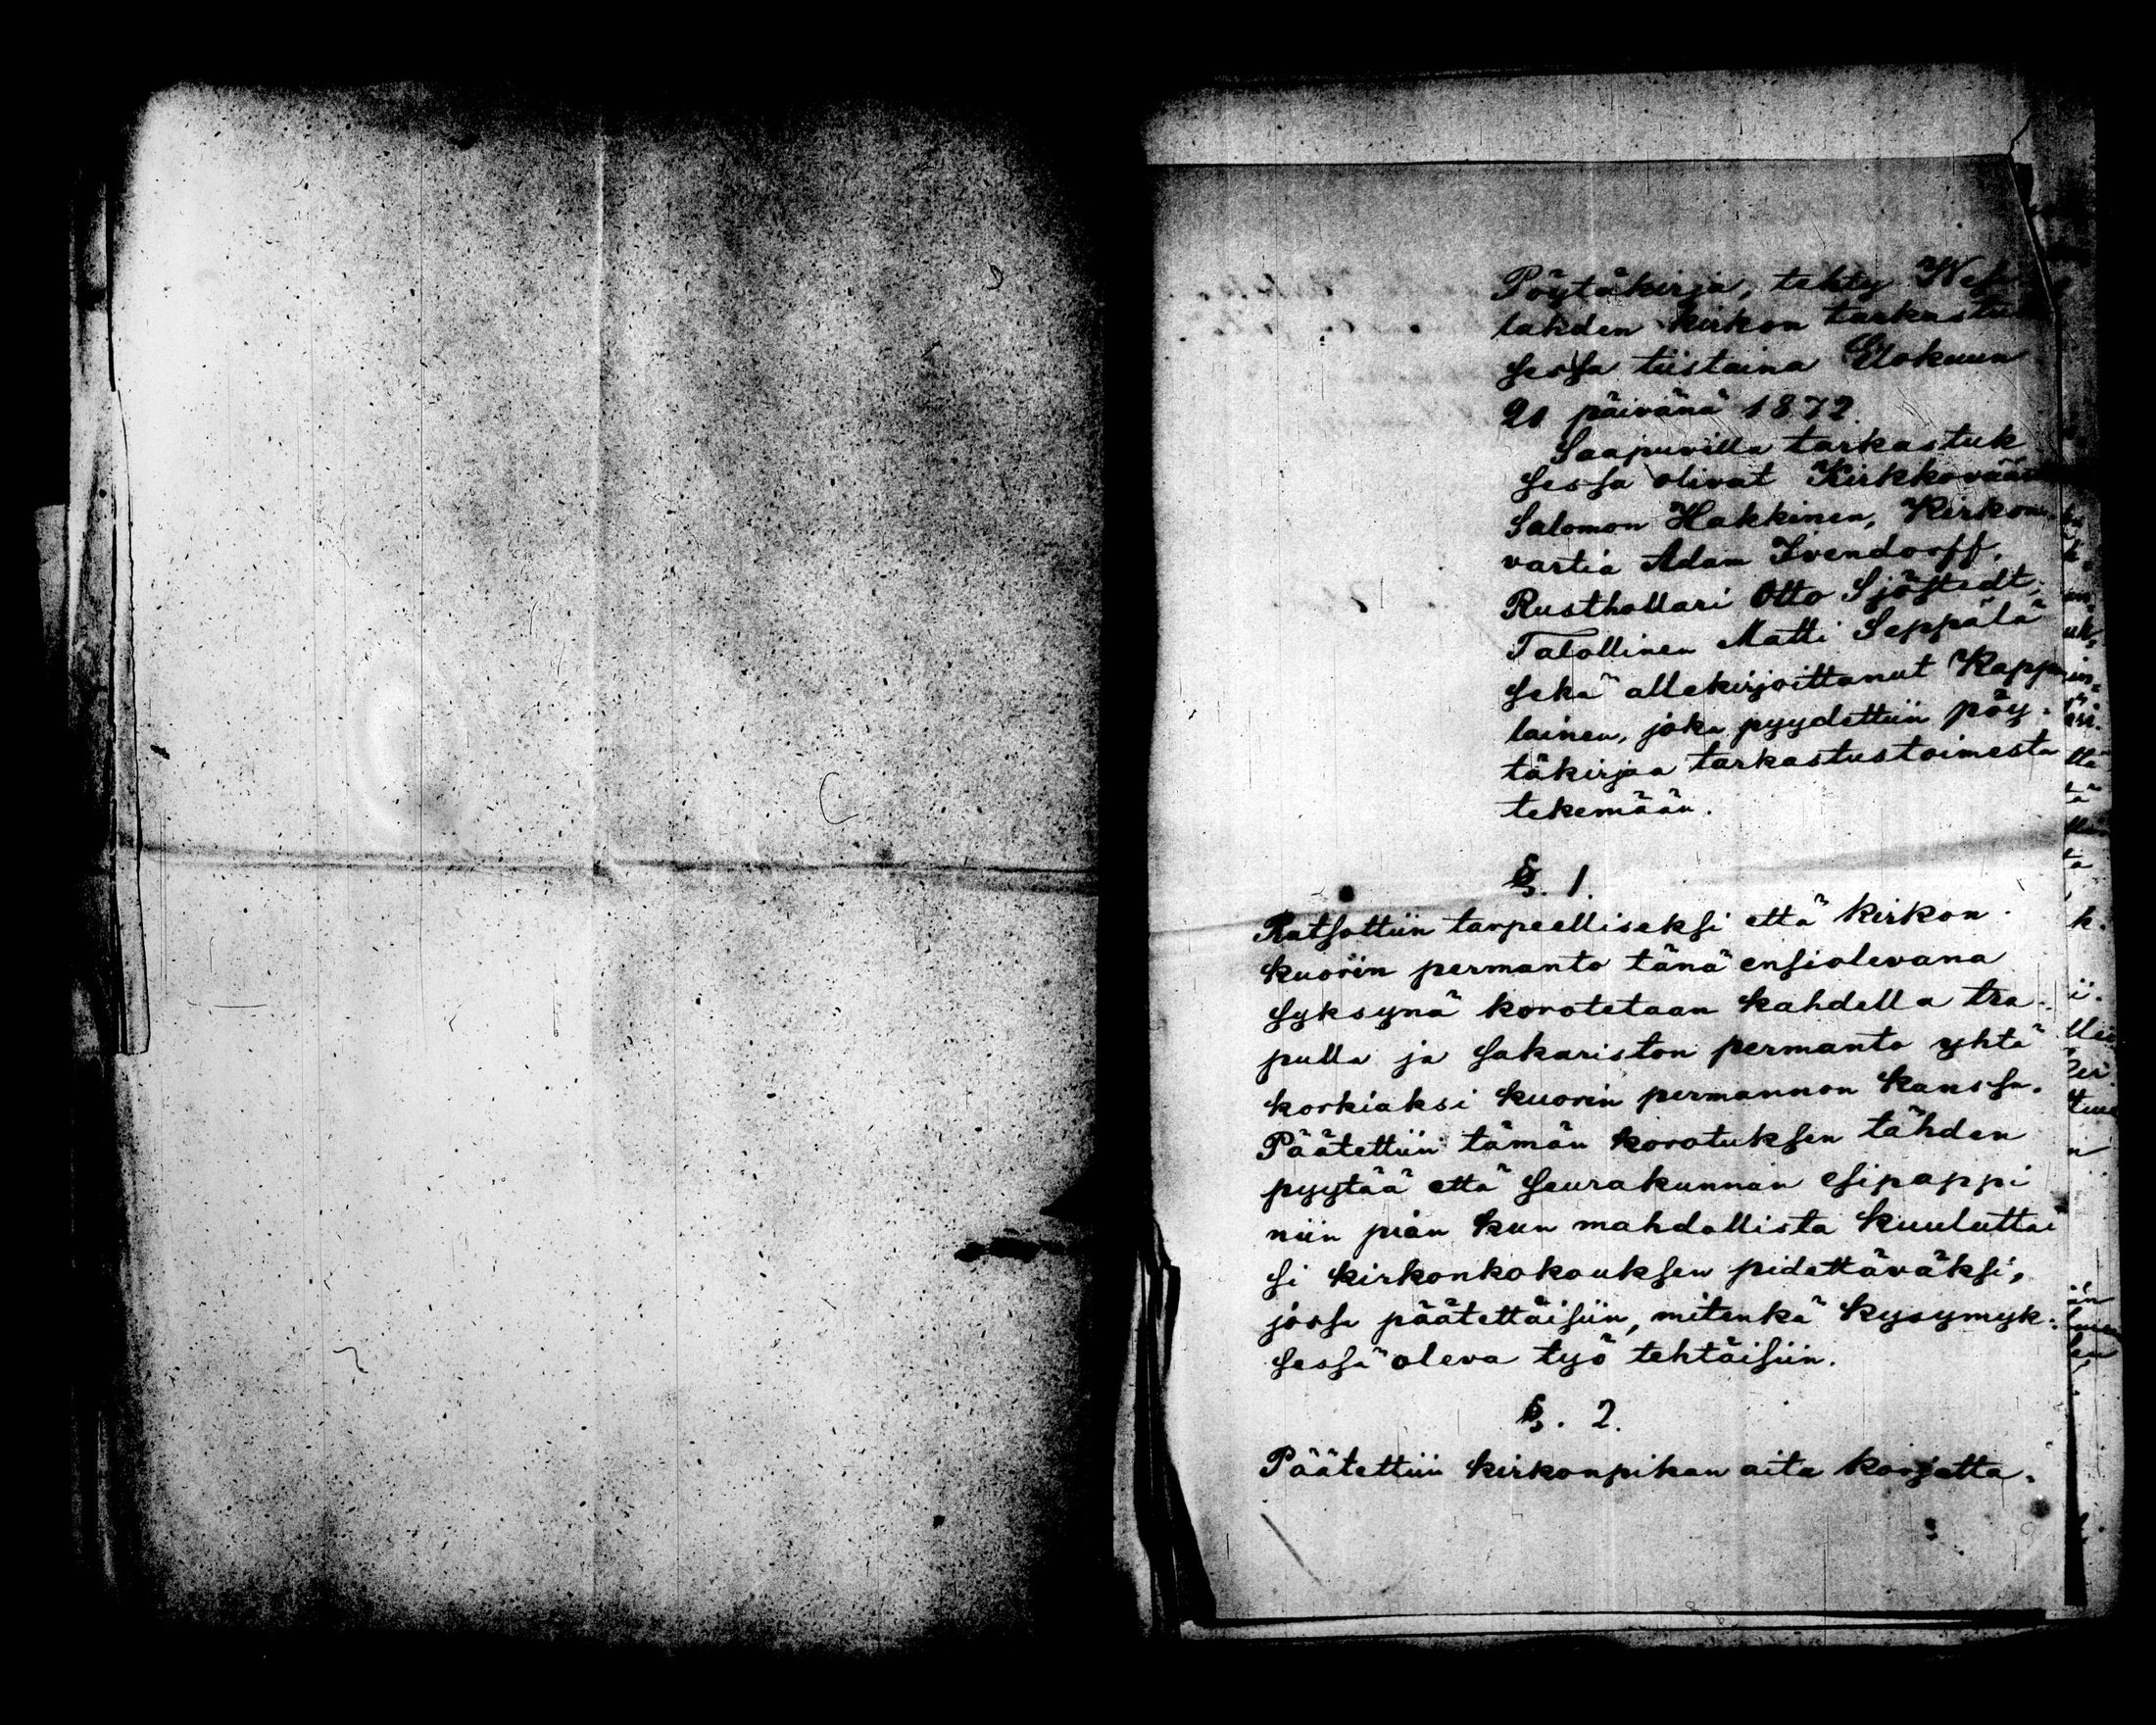 Pöytäkirja, tehty Wesi
lahden kirkon tarkastuk
sessa tiistaina Elokuun
21 päivänä 1872.
Saapuvilla tarkastuk
sessa olivat Kirkkovää
Salomon Hakkinen, Kirkon-
vartia Adam Ivendorff,
Rusthollari Otto Sjöstedt,
Talollinen Matti Seppälä
sekä allekirjoittanut Kappa
lainen, joka pyydettiin pöy-
täkirjaa tarkastustoimesta
tekemään.
§. 1.
Katsottiin tarpeelliseksi että kirkon
kuorin permanto tänä ensiolevana
syksynä korotetaan kahdella tra-
pulla ja sakariston permanto yhtä
korkiaksi kuorin permannon kanssa.
Päätettiin tämän korotuksen tähden
pyytää että seurakunnan esipappi
niin pian kun mahdollista kuuluttai
si kirkonkokouksen pidettäväksi,
jossa päätettäisiin, mitenkä kysymyk-
sessä oleva työ tehtäisiin.
§. 2.
Päätettiin kirkonpihan aita korjatta-